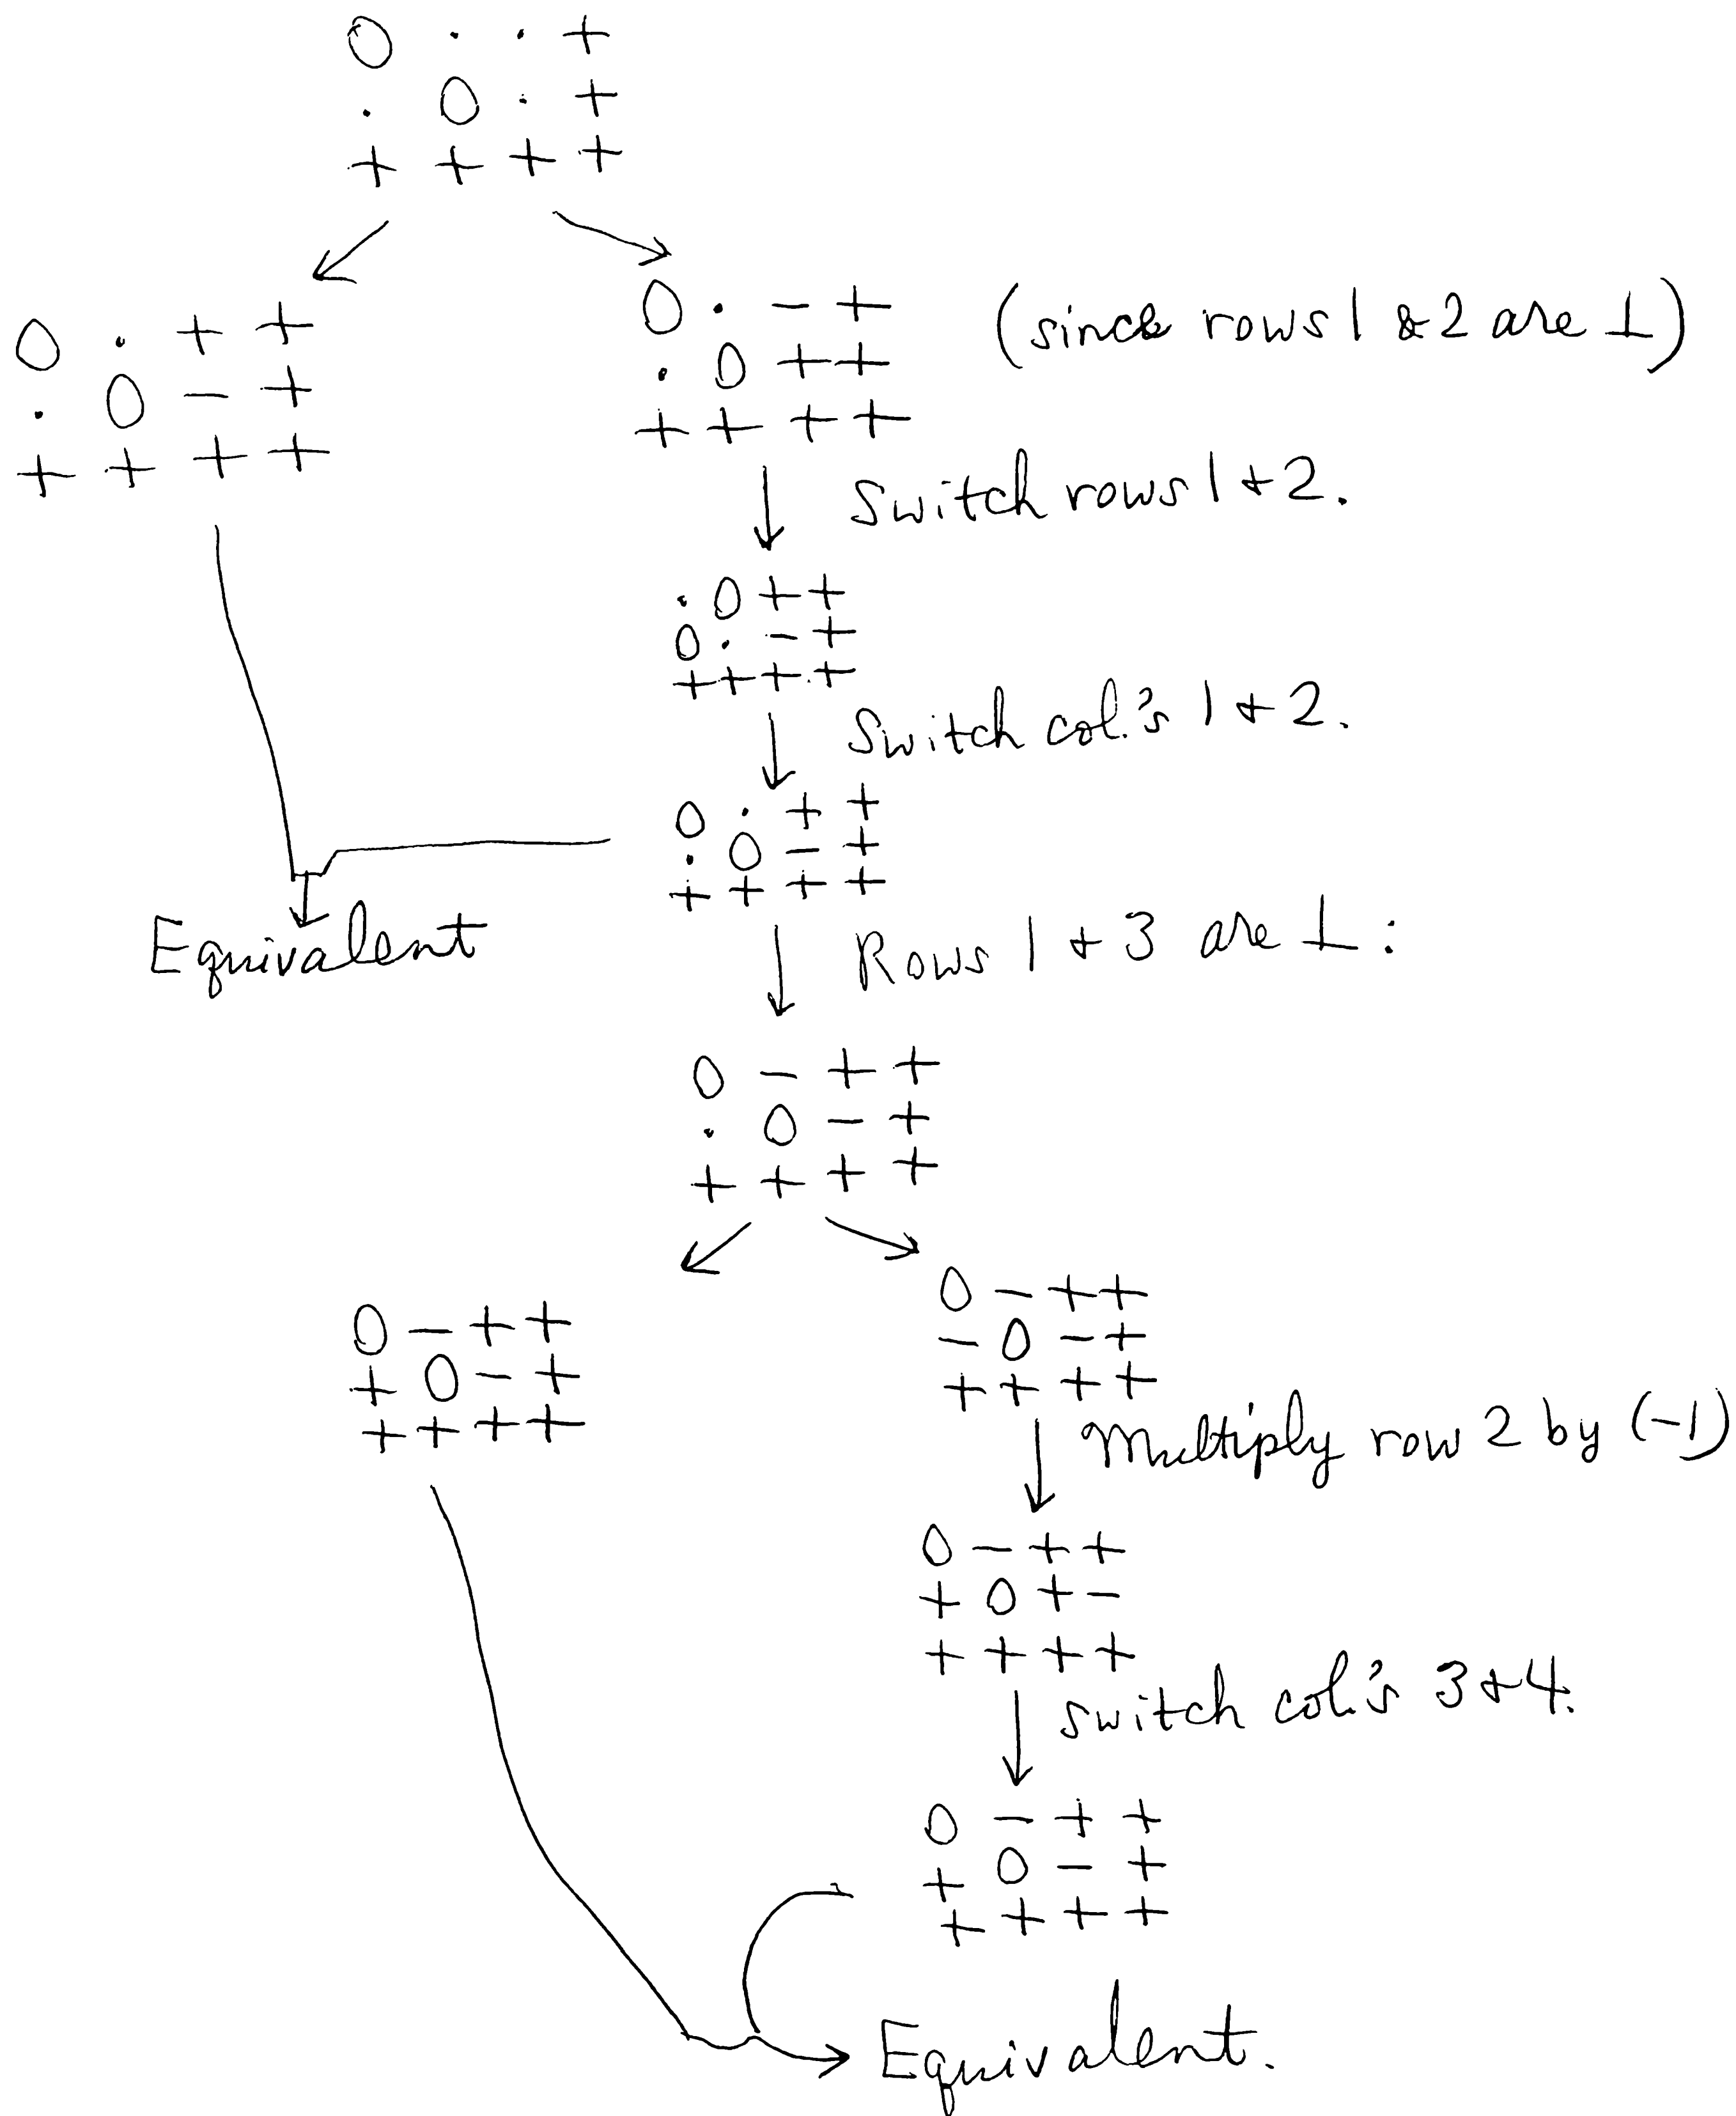 0 · · +
· 0 · +
+ + + +
0 · + +
· 0 − +
+ + + +
0 · − +
· 0 + +
+ + + +
(since rows 1 & 2 are ⊥)
Switch rows 1 + 2.
· 0 + +
0 · − +
+ + + +
Switch col.'s 1 + 2.
0 · + +
· 0 − +
+ + + +
Equivalent
Rows 1 + 3 are ⊥ :
0 − + +
· 0 − +
+ + + +
0 − + +
+ 0 − +
+ + + +
0 − + +
− 0 − +
+ + + +
Multiply row 2 by (−1)
0 − + +
+ 0 + −
+ + + +
switch col.'s 3 + 4.
0 − + +
+ 0 − +
+ + + +
Equivalent.